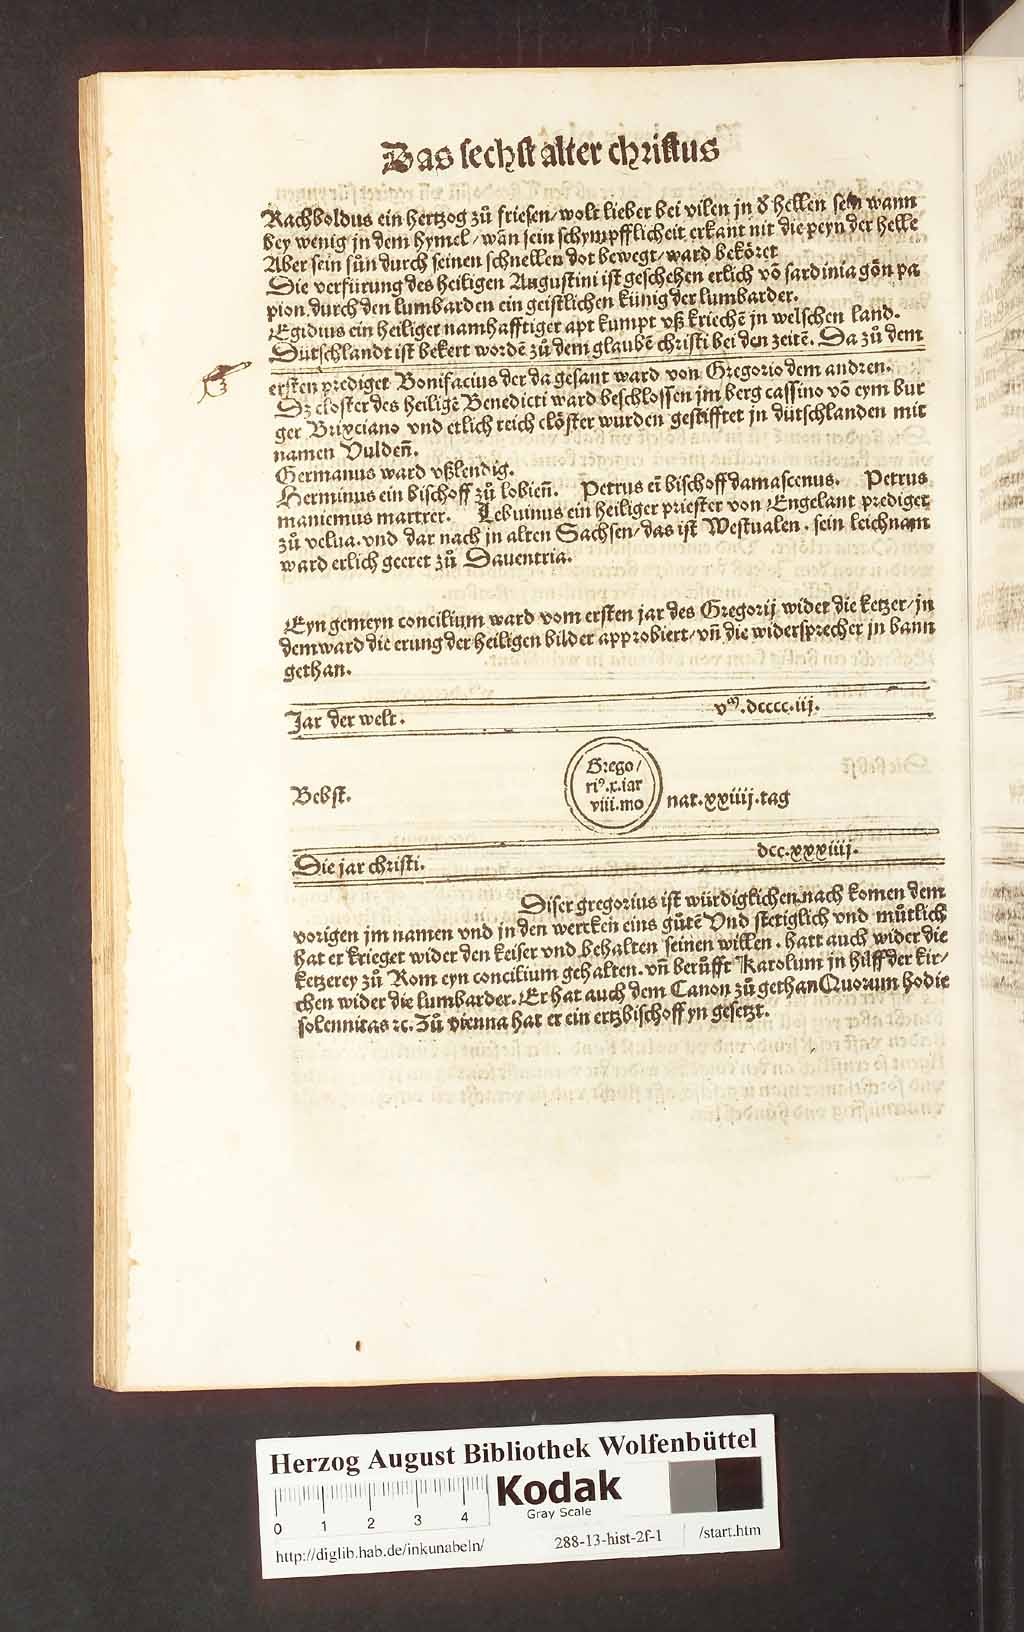 Das sechst alter christus
Rachboldus ein hertzog zů friesen/wolt lieber bei vilen jn d̕ hellen sein wann
bey wenig jn dem hymel/wān sein schympfflicheit erkant nit die peyn der helle
Aber sein sůn durch seinen schnellen dot bewegt/ward beköret
Die verfürung des heiligen Augustini ist geschehen erlich vō sardinia gōn pa
pion.durch den lumbarden ein geistlichen künig der lumbarder.
Egidius ein heiliger namhafftiger apt kumpt vß kriechē jn welschen land.
Dutschlandt ist bekert wordē zů dem glaubē christi bei den zeitē. Da zů dem
ersten prediget Bonifacius der da gesant ward von Gregorio dem andren.
Dz closter des heiligē Benedicti ward beschlossen jm berg cassino vō eym bur
ger Brixciano vnd etlich reich clöster wurden gestifftet in dütschlanden mit
namen Vulden̄.
Germanus ward vßlendig.
Herminus ein bischoff zů lobien̄. Petrus ein̄ bischoff damascenus. Petrus
maniemus martrer. Lebuinus ein heiliger priester von Engelant prediget
zů velua.vnd dar nach jn alten Sachsen/das ist Westualen. sein leichnam
ward erlich geeret zů Dauentria.
Eyn gemeyn concilium ward vom ersten jar des Gregorij wider die ketzer/jn
dem ward die erung der heiligen bilder approbiert/vn̄ die widersprecher jn bann
gethan.
Jar der welt. vᵐ.dcccc.iij.
Grego/
riꝰ.x.iar
viii.mo
Bebst. nat.xxiiij.tag
Die jar christi. dcc.xxxiiij.
Diser gregorius ist würdiglichen nach komen dem
vorigen jm namen vnd jn den wercken eins gůtē Vnd stetiglich vnd můtlich
hat er krieget wider den keiser vnd behalten seinen willen. hatt auch wider die
ketzerey zů Rom eyn concilium gehalten.vn̄ berůfft Karolum jn hilff der kir/
chen wider die lumbarder. Er hat auch dem Canon zů gethan Quorum hodie
solennitas ꝛc. Zů vienna hat er ein ertzbischoff yn gesetzt.
Herzog August Bibliothek Wolfenbüttel
0 1 2 3 4
Kodak
Gray Scale
http://diglib.hab.de/inkunabeln/ 288-13-hist-2f-1 /start.htm